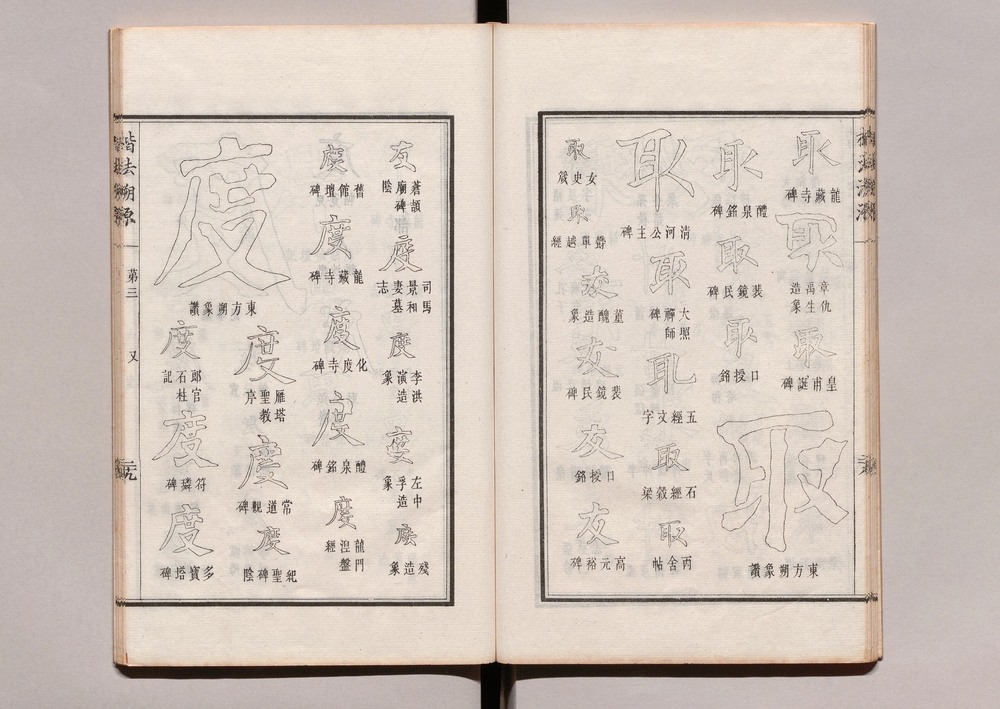 取
龍藏寺碑
取
章仇禹生造象
取
皇甫誕碑
取
東方朔象讚
取
醴泉銘碑
取
裴鏡民碑
取
口授銘
取
清河公主碑
取
大照禪師碑
取
五經文字
取
石經穀梁
取
丙舍帖
取
女史箴
取
單越經
友
董醜造象
友
裴鏡民碑
友
口授銘
友
高元裕碑
友
蒼頡廟碑陰
度
司馬景和妻墓志
度
李洪演造象
度
左中孚造象
度
殘造象
度
舊館壇碑
度
龍藏寺碑
度
化度寺碑
度
醴泉銘碑
度
龍門涅盤經
度
東方朔象讚
度
雁塔聖教序
度
常道觀碑
度
紀聖碑陰
度
郎官石柱記
度
符璘碑
度
多寶塔碑
楷法溯源
第三
又